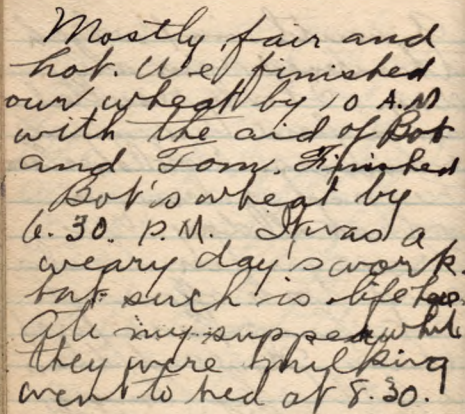 Mostly fair and
hot. We finished
our wheat by 10 A.M
with the aid of Bob
and Tom. Finished
Bob's wheat by
6.30. P.M. It was a
weary day's work.
but such is life
Ate my supper while
they were milking
went to bed at 8.30.